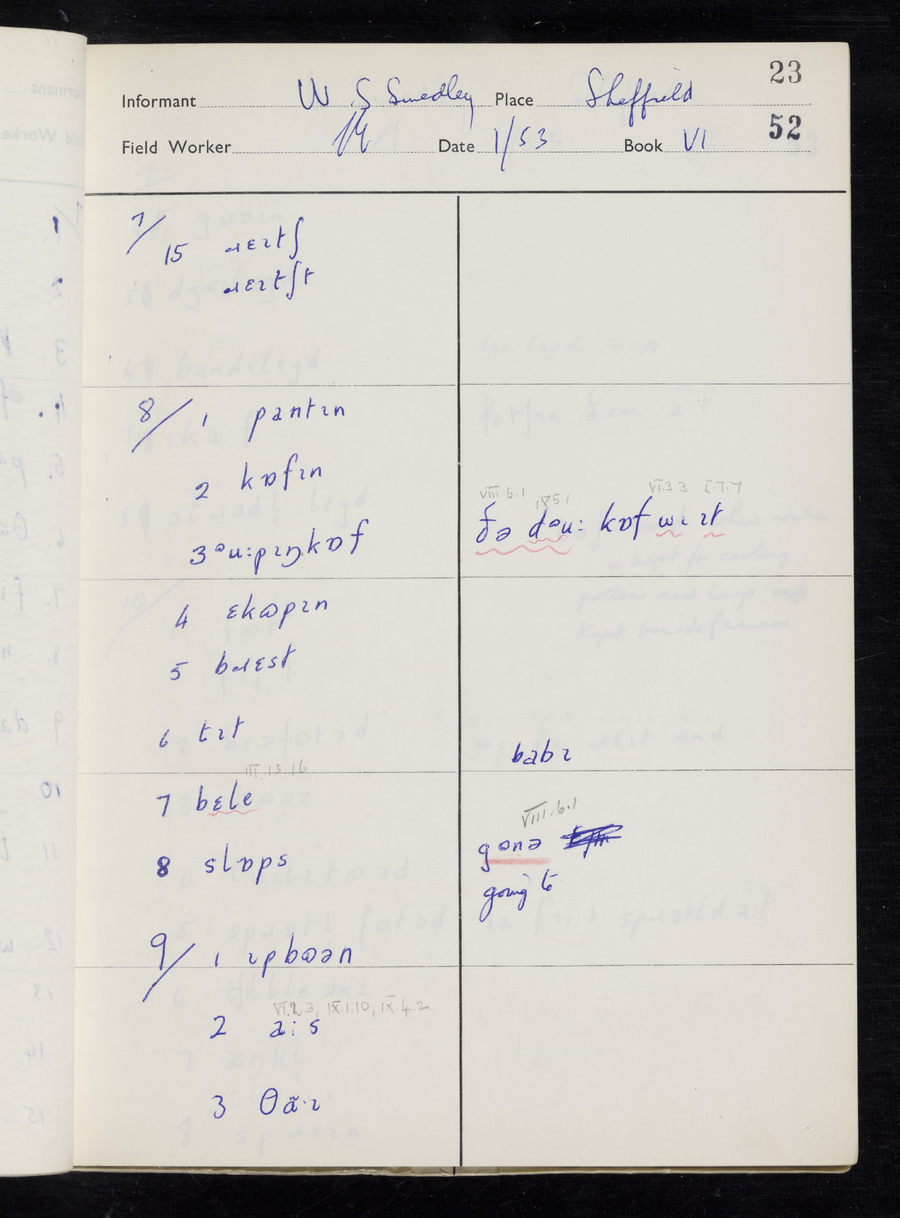 23
Informant W S Smedley Place Sheffield
52
Field Worker Date 1/53 Book VI
7/ 15 ɹɛɪtʃ
ɹɛɪtʃt
8/ 1 pantɪn
2 kɒfɪn
VIII.6.1 IX 5 1 VI.3 3 I.7.7
ðə dəu: kɒf wɪ ɪt
3 əu:pɪŋkɒf
4 ɛkʊpɪn
5 bɹɛst
6 tɪt
babɪ
III.13.16
7 bɛle
VIII.6.1
8 slɒps gənə
going to
9/ 1 ɪpbʊən
VI.2 3, IX.1.10, IX.4.2
2 a:s
3 θã·ɪ